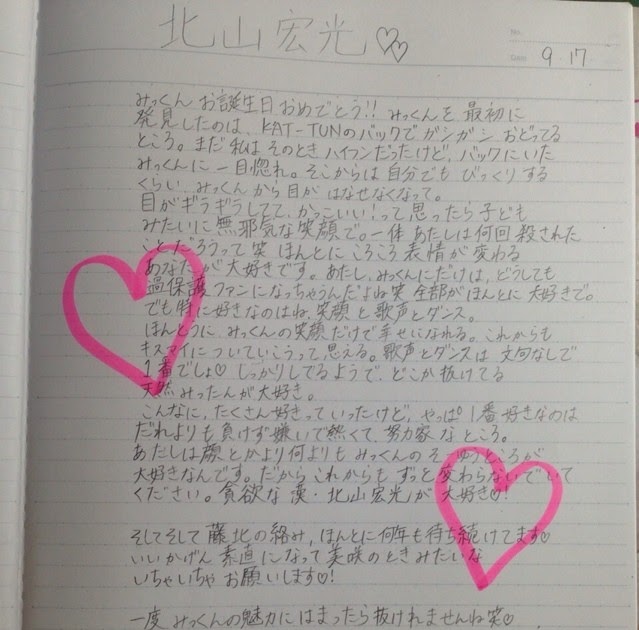 北山宏光♡♡
No.
Date 9.17
みっくん お誕生日おめでとう!! みっくんを 最初に
発見したのは、KAT-TUNのバックでガシガシ おどってる
ところ。まだ 私は そのとき ハイフンだったけど、バックにいた
みっくんに 一目惚れ。そこからは 自分でも びっくりする
くらい みっくんから 目が はなせなくなって。
目がギラギラしてて、かっこいい!って思ったら子ども
みたいに無邪気な笑顔で。一体 あたしは何回 殺された
ことだろうって笑 ほんとに ころころ 表情が 変わる
あなたが 大好きです。あたし、みっくんにだけは、どうしても
過保護ファンになっちゃうんだよね笑 全部が ほんとに 大好きで。
でも 特に好きなのはね、笑顔 と 歌声とダンス。
ほんとうに みっくんの笑顔だけで 幸せになれる。これからも
キスマイに ついていこうって 思える。歌声とダンスは 文句なしで
1番でしょ♡ しっかりしてるようで、どこか 抜けてる
天然 みったんが 大好き。
こんなに、たくさん好きって いったけど、やっぱ 1番好きなのは
だれよりも 負けず嫌いで熱くて、努力家 なところ。
あたしは顔とかより 何よりも みっくんの そーゆうところが
大好きなんです。だから これからも ずっと 変わらないで いて
ください。貪欲な 漢・北山宏光が 大好き♡!
そしてそして 藤北の絡み、ほんとに 何年も 待ち続けてます♡
いいかげん 素直になって 美咲のときみたいな
いちゃいちゃ お願いします♡!
一度 みっくんの魅力に はまったら 抜けれませんね笑♡